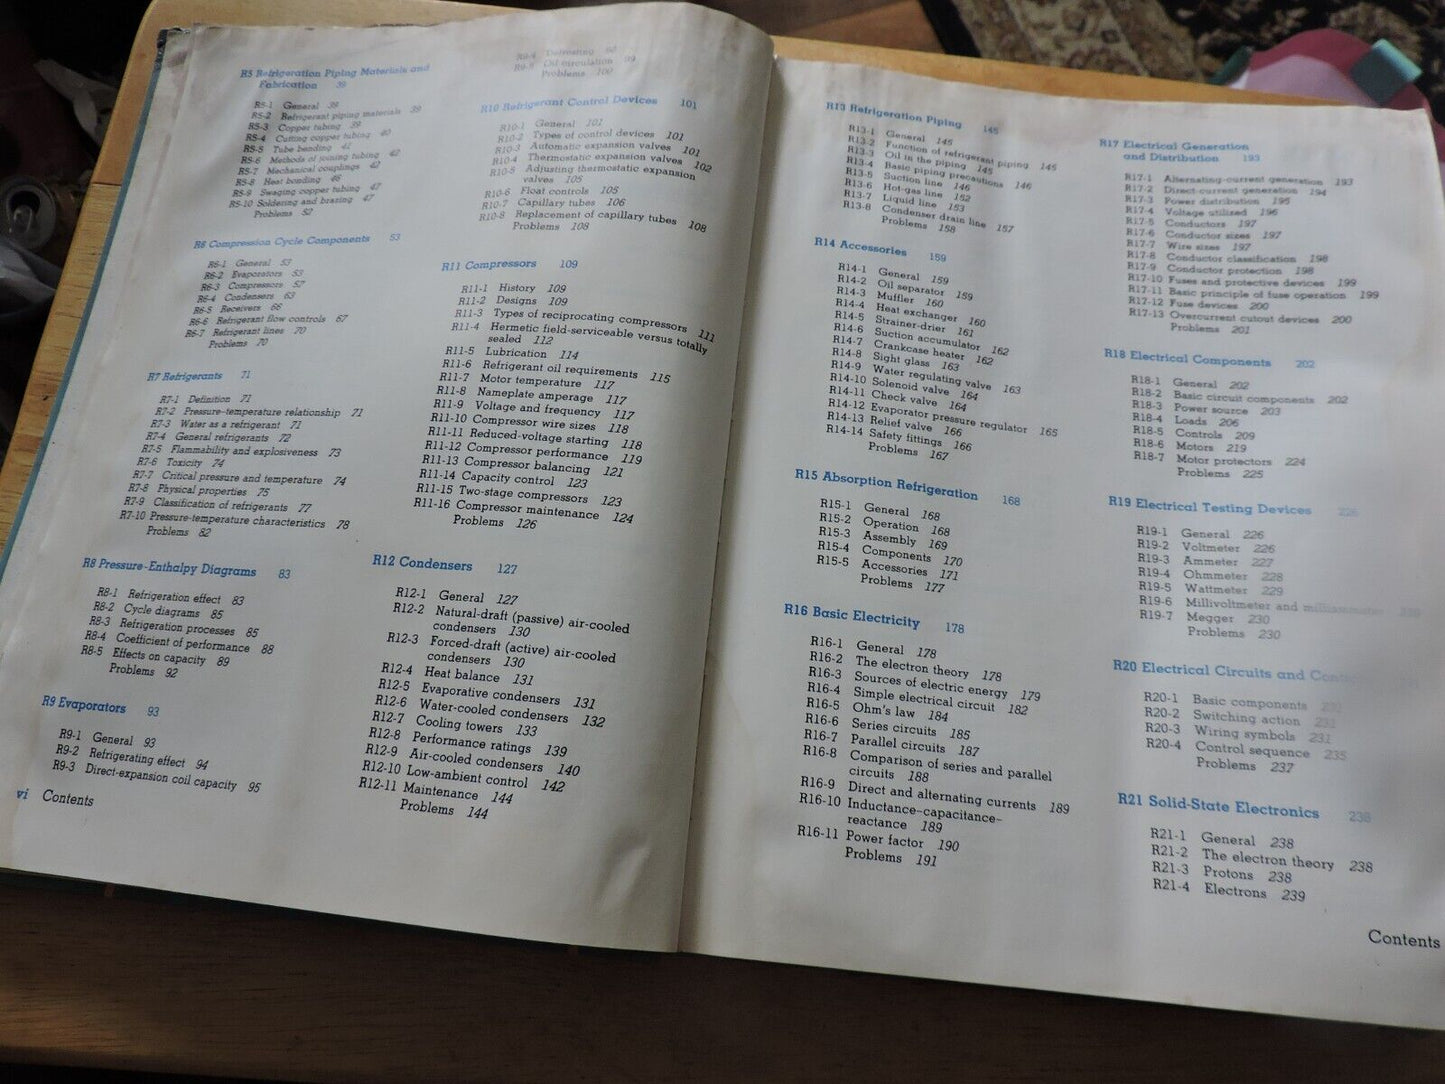 R5 Refrigeration Piping Materials and
Fabrication 39
R5-1 General 39
R5-2 Refrigerant piping materials 39
R5-3 Copper tubing 39
R5-4 Cutting copper tubing 40
R5-5 Tube bending 41
R5-6 Methods of joining tubing 42
R5-7 Mechanical couplings 42
R5-8 Heat bonding 46
R5-9 Swaging copper tubing 47
R5-10 Soldering and brazing 47
Problems 52
R6 Compression Cycle Components 53
R6-1 General 53
R6-2 Evaporators 53
R6-3 Compressors 57
R6-4 Condensers 63
R6-5 Receivers 66
R6-6 Refrigerant flow controls 67
R6-7 Refrigerant lines 70
Problems 70
R7 Refrigerants 71
R7-1 Definition 71
R7-2 Pressure-temperature relationship 71
R7-3 Water as a refrigerant 71
R7-4 General refrigerants 72
R7-5 Flammability and explosiveness 73
R7-6 Toxicity 74
R7-7 Critical pressure and temperature 74
R7-8 Physical properties 75
R7-9 Classification of refrigerants 77
R7-10 Pressure-temperature characteristics 78
Problems 82
R8 Pressure-Enthalpy Diagrams 83
R8-1 Refrigeration effect 83
R8-2 Cycle diagrams 85
R8-3 Refrigeration processes 85
R8-4 Coefficient of performance 88
R8-5 Effects on capacity 89
Problems 92
R9 Evaporators 93
R9-1 General 93
R9-2 Refrigerating effect 94
R9-3 Direct-expansion coil capacity 95
vi Contents
R9-4 Defrosting
R9-5 Oil circulation 99
Problems 100
R10 Refrigerant Control Devices 101
R10-1 General 101
R10-2 Types of control devices 101
R10-3 Automatic expansion valves 101
R10-4 Thermostatic expansion valves 102
R10-5 Adjusting thermostatic expansion
valves 105
R10-6 Float controls 105
R10-7 Capillary tubes 106
R10-8 Replacement of capillary tubes 108
Problems 108
R11 Compressors 109
R11-1 History 109
R11-2 Designs 109
R11-3 Types of reciprocating compressors 111
R11-4 Hermetic field-serviceable versus totally
sealed 112
R11-5 Lubrication 114
R11-6 Refrigerant oil requirements 115
R11-7 Motor temperature 117
R11-8 Nameplate amperage 117
R11-9 Voltage and frequency 117
R11-10 Compressor wire sizes 118
R11-11 Reduced-voltage starting 118
R11-12 Compressor performance 119
R11-13 Compressor balancing 121
R11-14 Capacity control 123
R11-15 Two-stage compressors 123
R11-16 Compressor maintenance 124
Problems 126
R12 Condensers 127
R12-1 General 127
R12-2 Natural-draft (passive) air-cooled
condensers 130
R12-3 Forced-draft (active) air-cooled
condensers 130
R12-4 Heat balance 131
R12-5 Evaporative condensers 131
R12-6 Water-cooled condensers 132
R12-7 Cooling towers 133
R12-8 Performance ratings 139
R12-9 Air-cooled condensers 140
R12-10 Low-ambient control 142
R12-11 Maintenance 144
Problems 144
R13 Refrigeration Piping 145
R13-1 General 145
R13-2 Function of refrigerant piping 145
R13-3 Oil in the piping 145
R13-4 Basic piping precautions 146
R13-5 Suction line 146
R13-6 Hot-gas line 152
R13-7 Liquid line 153
R13-8 Condenser drain line 157
Problems 158
R14 Accessories 159
R14-1 General 159
R14-2 Oil separator 159
R14-3 Muffler 160
R14-4 Heat exchanger 160
R14-5 Strainer-drier 161
R14-6 Suction accumulator 162
R14-7 Crankcase heater 162
R14-8 Sight glass 163
R14-9 Water regulating valve 163
R14-10 Solenoid valve 164
R14-11 Check valve 164
R14-12 Evaporator pressure regulator 165
R14-13 Relief valve 166
R14-14 Safety fittings 166
Problems 167
R15 Absorption Refrigeration 168
R15-1 General 168
R15-2 Operation 168
R15-3 Assembly 169
R15-4 Components 170
R15-5 Accessories 171
Problems 177
R16 Basic Electricity 178
R16-1 General 178
R16-2 The electron theory 178
R16-3 Sources of electric energy 179
R16-4 Simple electrical circuit 182
R16-5 Ohm's law 184
R16-6 Series circuits 185
R16-7 Parallel circuits 187
R16-8 Comparison of series and parallel
circuits 188
R16-9 Direct and alternating currents 189
R16-10 Inductance–capacitance–
reactance 189
R16-11 Power factor 190
Problems 191
R17 Electrical Generation
and Distribution 193
R17-1 Alternating-current generation 193
R17-2 Direct-current generation 194
R17-3 Power distribution 195
R17-4 Voltage utilized 196
R17-5 Conductors 197
R17-6 Conductor sizes 197
R17-7 Wire sizes 197
R17-8 Conductor classification 198
R17-9 Conductor protection 198
R17-10 Fuses and protective devices 199
R17-11 Basic principle of fuse operation 199
R17-12 Fuse devices 200
R17-13 Overcurrent cutout devices 200
Problems 201
R18 Electrical Components 202
R18-1 General 202
R18-2 Basic circuit components 202
R18-3 Power source 203
R18-4 Loads 206
R18-5 Controls 209
R18-6 Motors 219
R18-7 Motor protectors 224
Problems 225
R19 Electrical Testing Devices 226
R19-1 General 226
R19-2 Voltmeter 226
R19-3 Ammeter 227
R19-4 Ohmmeter 228
R19-5 Wattmeter 229
R19-6 Millivoltmeter and milliammeter
R19-7 Megger 230
Problems 230
R20 Electrical Circuits and
R20-1 Basic components
R20-2 Switching action 231
R20-3 Wiring symbols 231
R20-4 Control sequence 235
Problems 237
R21 Solid-State Electronics 238
R21-1 General 238
R21-2 The electron theory 238
R21-3 Protons 238
R21-4 Electrons 239
Contents